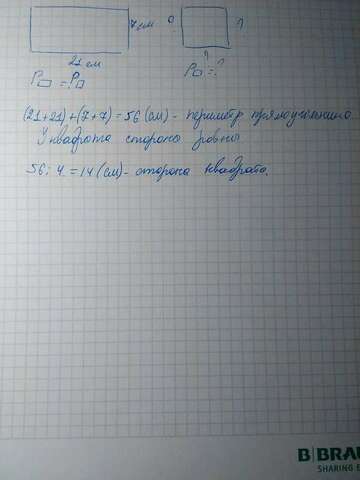 7 см ? ?
21 см ?
P▭ = P▱ P▱ = ?
(21+21)+(7+7)=56 (см) - периметр прямоугольника.
У квадрата стороны равны
56:4=14 (см) - сторона квадрата.
B|BRAU
SHARING E